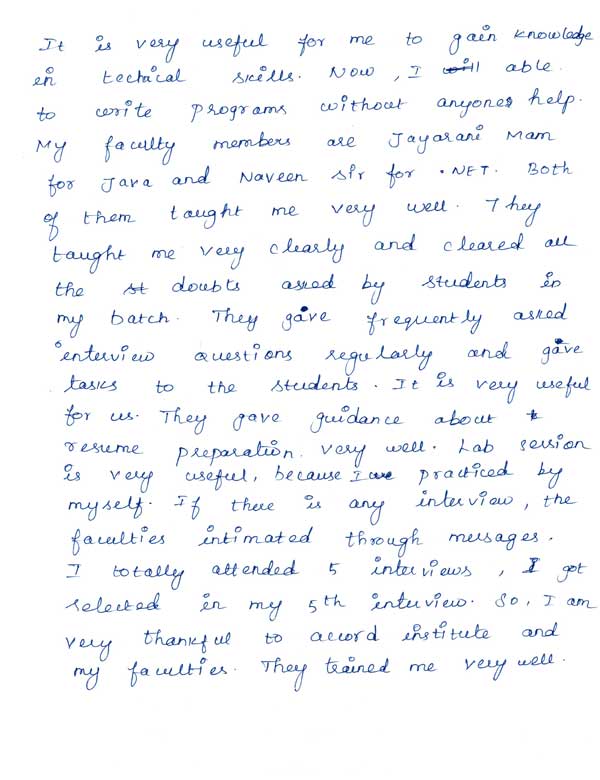 It is very useful for me to gain knowledge
in techical skills. Now, I will able
to write programs without anyones help.
My faculty members are Jayarani Mam
for Java and Naveen sir for .NET. Both
of them taught me very well. They
taught me very clearly and cleared all
the st doubts asked by students in
my batch. They gave frequently asked
interview questions regularly and gave
tasks to the students. It is very useful
for us. They gave guidance about t
resume preparation very well. Lab session
is very useful, because I practiced by
myself. If there is any interview, the
faculties intimated through messages.
I totally attended 5 interviews, I got
selected in my 5th interview. So, I am
very thankful to accord institute and
my faculties. They trained me very well.